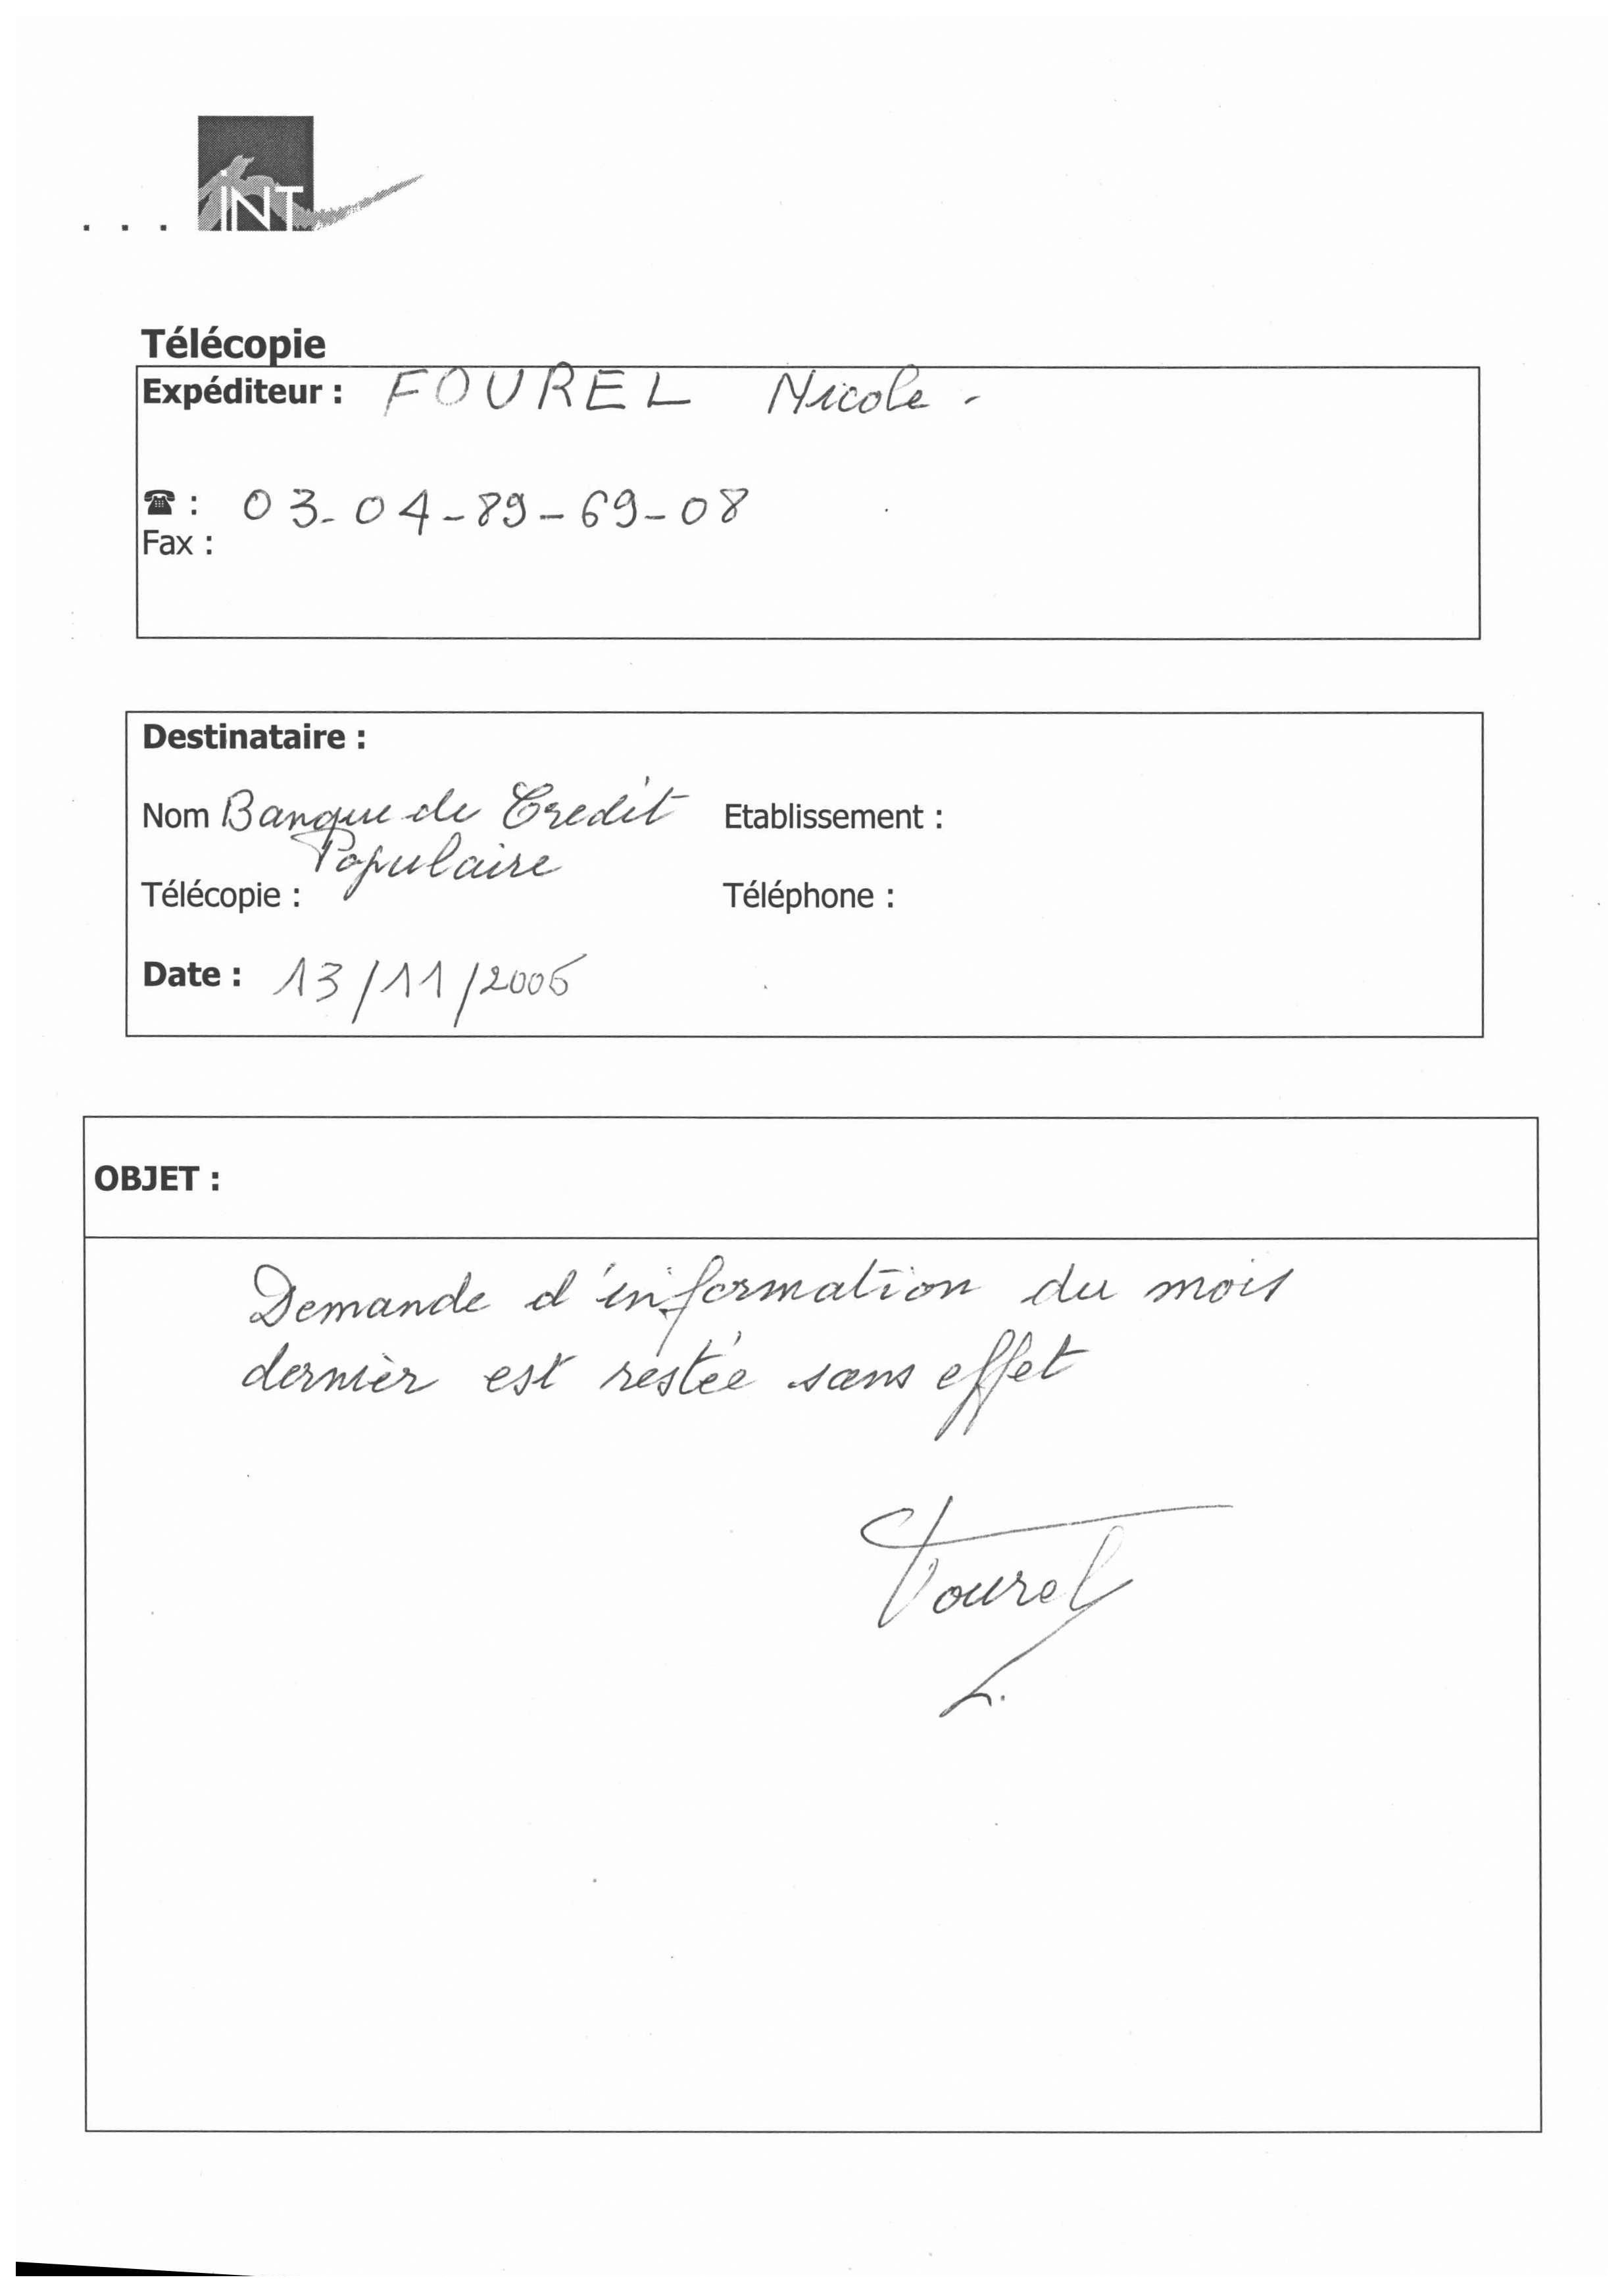 . . . iNT
Télécopie
Expéditeur : FOUREL Nicole -
☎ : 03-04-89-69-08
Fax :
Destinataire :
Nom Banque de Crédit Etablissement :
Populaire
Télécopie : Téléphone :
Date : 13/11/2006
OBJET :
Demande d'information du mois
dernier est restée sans effet
Fourel